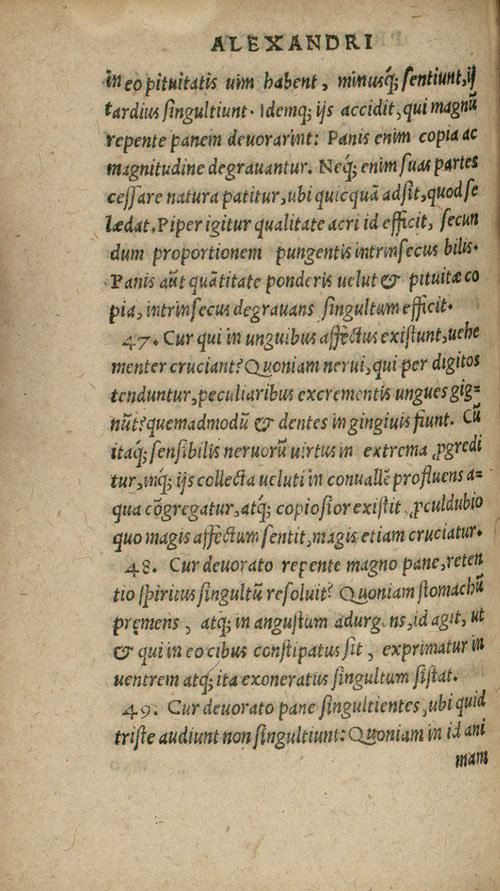 ALEXANDRI
in eo pituitatis uim habent, minusq́; sentiunt, ij
tardius singultiunt. Idemq; ijs accidit, qui magnũ
repente panem deuorarint: Panis enim copia ac
magnitudine degrauantur. Neq́; enim suas partes
cessare natura patitur, ubi quicquã adsit, quod se
lædat. Piper igitur qualitate acri id efficit, secun
dum proportionem pungentis intrinsecus bilis.
Panis aũt quãtitate ponderis uelut & pituitæ co
pia, intrinsecus degrauans singultum efficit.
47. Cur qui in unguibus affectus existunt, uehe
menter cruciant? Quoniam nerui, qui per digitos
tenduntur, peculiaribus excrementis ungues gig-
nũt? quemadmodũ & dentes in gingiuis fiunt. Cũ
itaq́; sensibilis neruorũ uirtus in extrema ꝓgredi
tur, inq́; ijs collecta ueluti in conuallẽ profluens a-
qua cõgregatur, atq́; copiosior existit ꝓculdubio
quo magis affectum sentit, magis etiam cruciatur.
48. Cur deuorato repente magno pane, reten
tio spiritus singultũ resoluit? Quoniam stomachũ
pręmens, atq; in angustum adurg ns, id agit, ut
& qui in eo cibus constipatus sit, exprimatur in
uentrem atq; ita exoneratus singultum sistat.
49. Cur deuorato pane singultientes, ubi quid
triste audiunt non singultiunt: Quoniam in id ani
mam